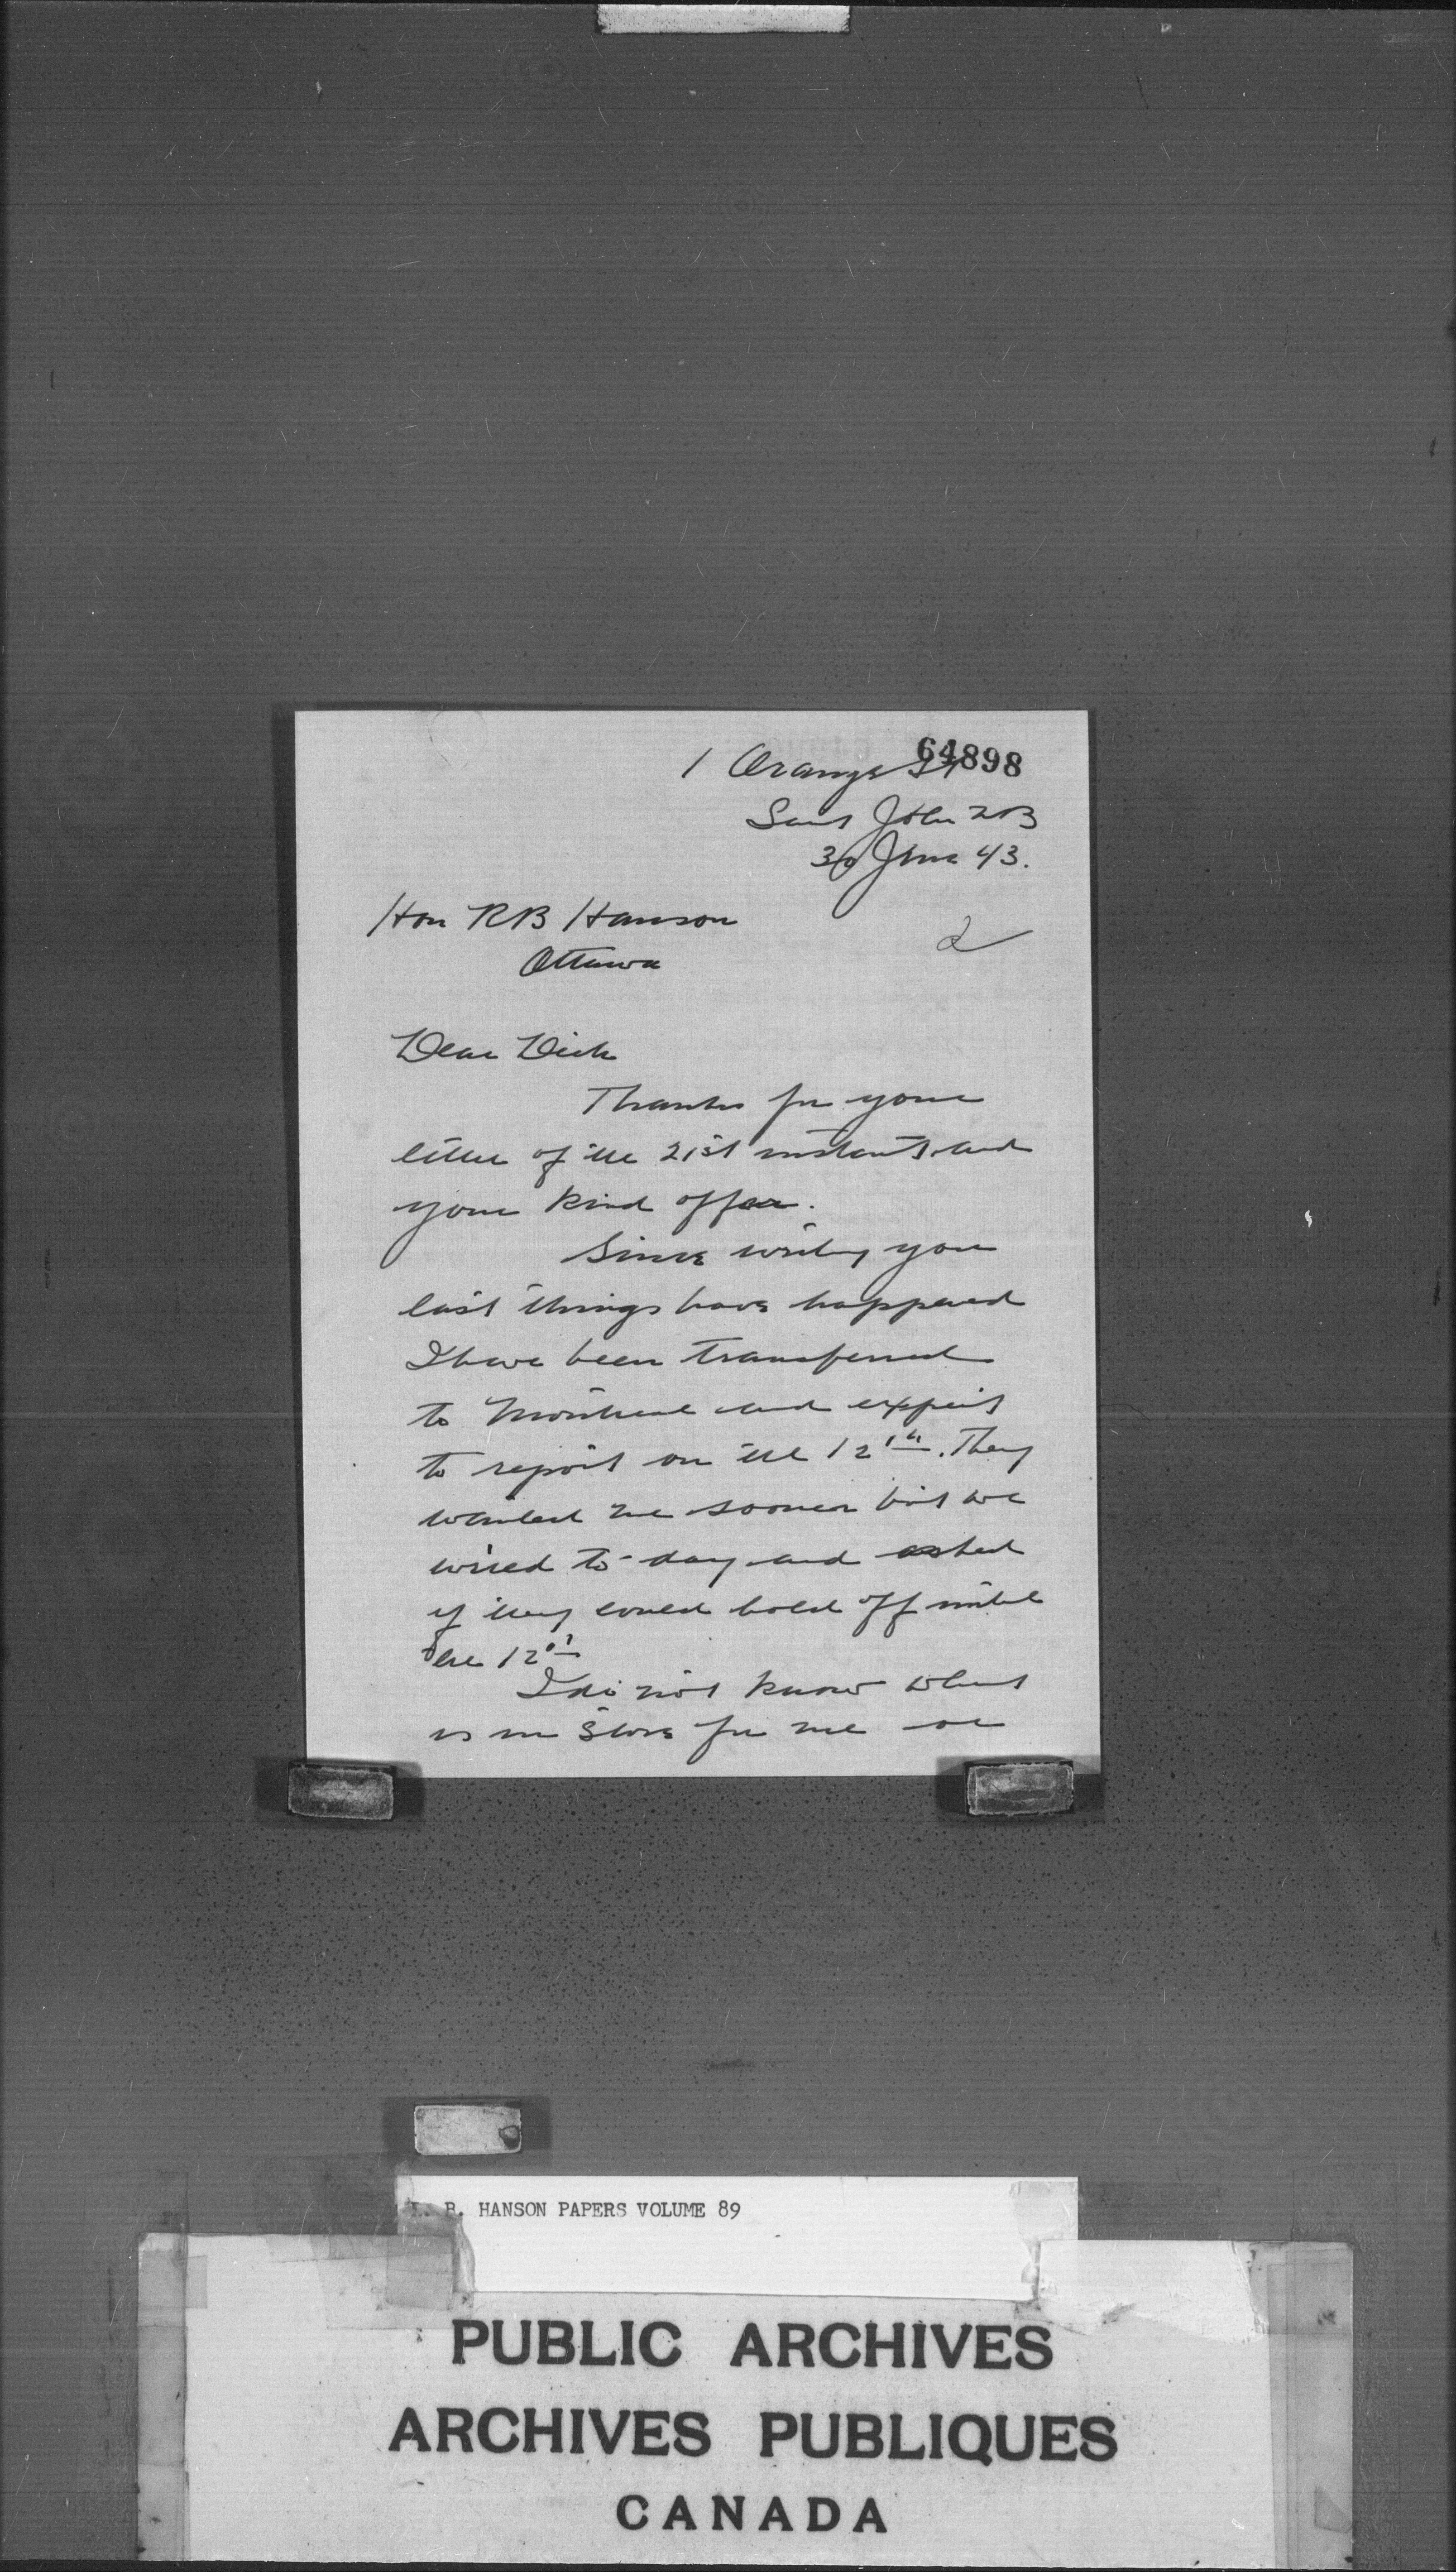 64898
1 Orange St
Saint John NB
30 June 43.
Hon RB Hanson
2
Ottawa
Dear Dick
Thanks for your
letter of the 21st instant and
your kind offer.
Since writing you
last things have happened
I have been transferred
to Montreal and expect
to report on the 12th. They
wanted me sooner but we
wired to-day and asked
if they could hold off until
the 12th
I do not know what
is in store for me or
R. B. HANSON PAPERS VOLUME 89
PUBLIC ARCHIVES
ARCHIVES PUBLIQUES
CANADA